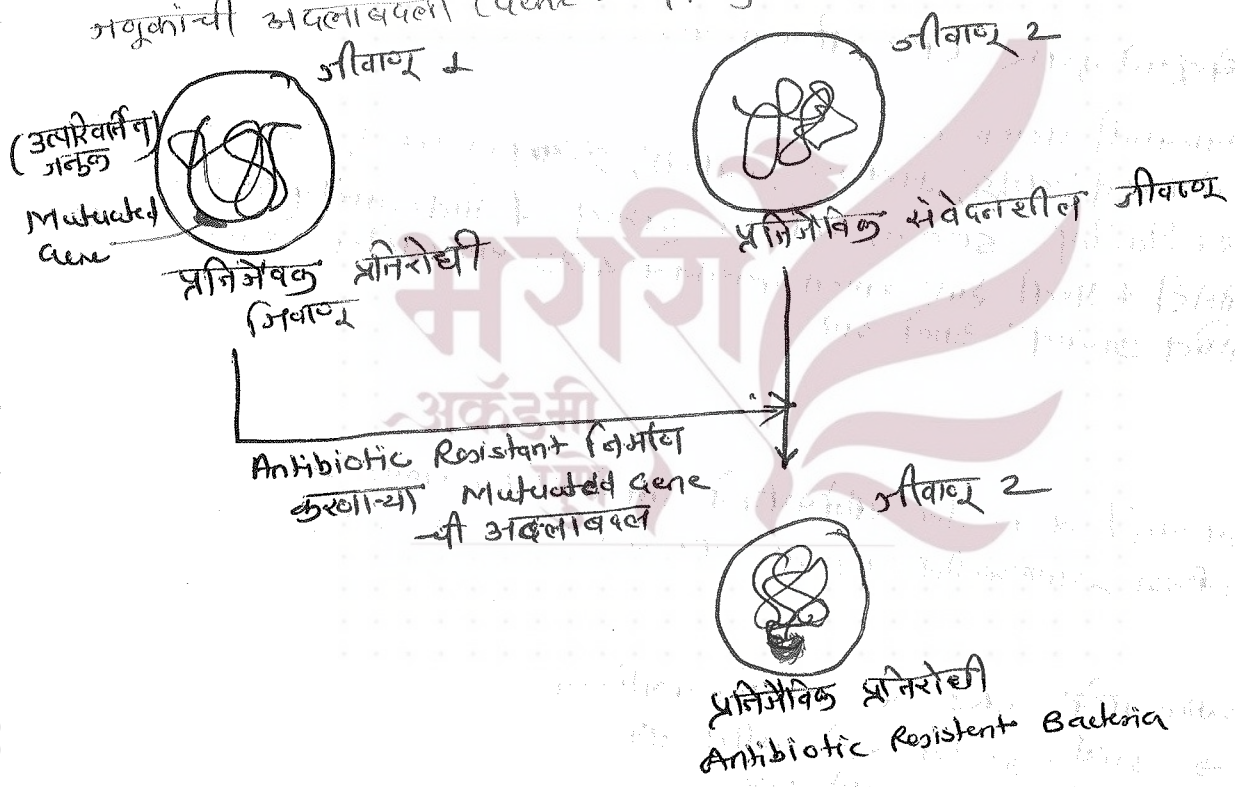 जनुकांची अदलाबदली
जीवाणू 1
जीवाणू 2
(उत्परिवर्तित)
जनुक
Mutuated
Gene
प्रतिजैवक प्रतिरोधी
जिवाणू
प्रतिजैविक संवेदनशील जीवाणू
भगीरथ
अकॅडमी
पुणे
Antibiotic Resistant निर्माण
करणाऱ्या Mutuated Gene
ची अदलाबदल
जीवाणू 2
प्रतिजैविक प्रतिरोधी
Antibiotic Resistent Bacteria